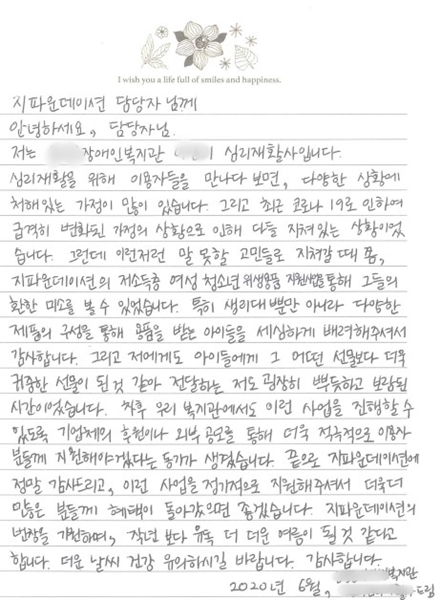 I wish you a life full of smiles and happiness.
지파운데이션 담당자님께
안녕하세요, 담당자님.
저는 장애인복지관 심리재활사입니다.
심리재활을 위해 이용자들을 만나다 보면, 다양한 상황에
처해있는 가정이 많이 있습니다. 그리고 최근 코로나19로 인하여
급격히 변화된 가정의 상황으로 인해 다들 지쳐있는 상황이었
습니다. 그런데 이런저런 말 못할 고민들로 지쳐갈 때 쯤,
지파운데이션의 저소득층 여성 청소년 위생용품 지원사업을 통해 그들의
환한 미소를 볼 수 있었습니다. 특히 생리대뿐만 아니라 다양한
제품의 구성을 통해 용품을 받은 아이들을 세심하게 배려해주셔서
감사합니다. 그리고 저에게도 아이들에게 그 어떤 선물보다 더욱
귀중한 선물이 된 것 같아 전달하는 저도 굉장히 뿌듯하고 보람된
시간이었습니다. 차후 우리 복지관에서도 이런 사업을 진행할 수
있도록 기업체의 후원이나 외부 공모를 통해 더욱 적극적으로 이용자
분들께 지원해야겠다는 동기가 생겼습니다. 끝으로 지파운데이션에
정말 감사드리고, 이런 사업을 정기적으로 지원해주셔서 더욱더
많은 분들께 혜택이 돌아갔으면 좋겠습니다. 지파운데이션의
번창을 기원하며, 작년 보다 유독 더 더운 여름이 될 것 같다고
합니다. 더운 날씨 건강 유의하시길 바랍니다. 감사합니다.
2020년 6월, 복지관
드림